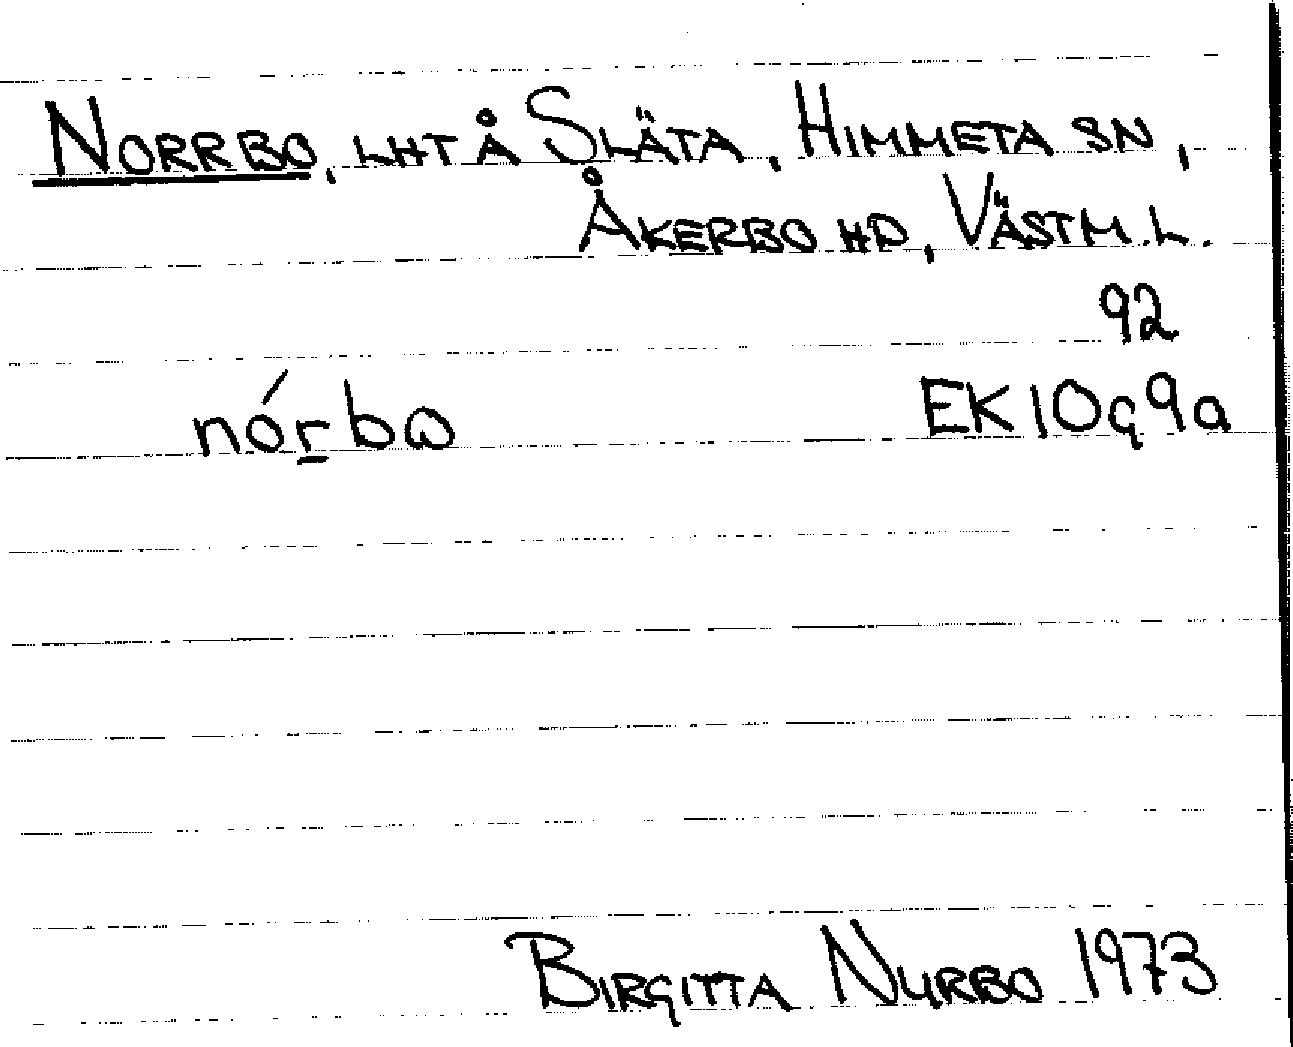 NORRBO, LHT Å SLÄTA, HIMMETA SN,
ÅKERBO HD, VÄSTM. L.
92
nórbω EK 10g9a
BIRGITTA NYRBO 1973